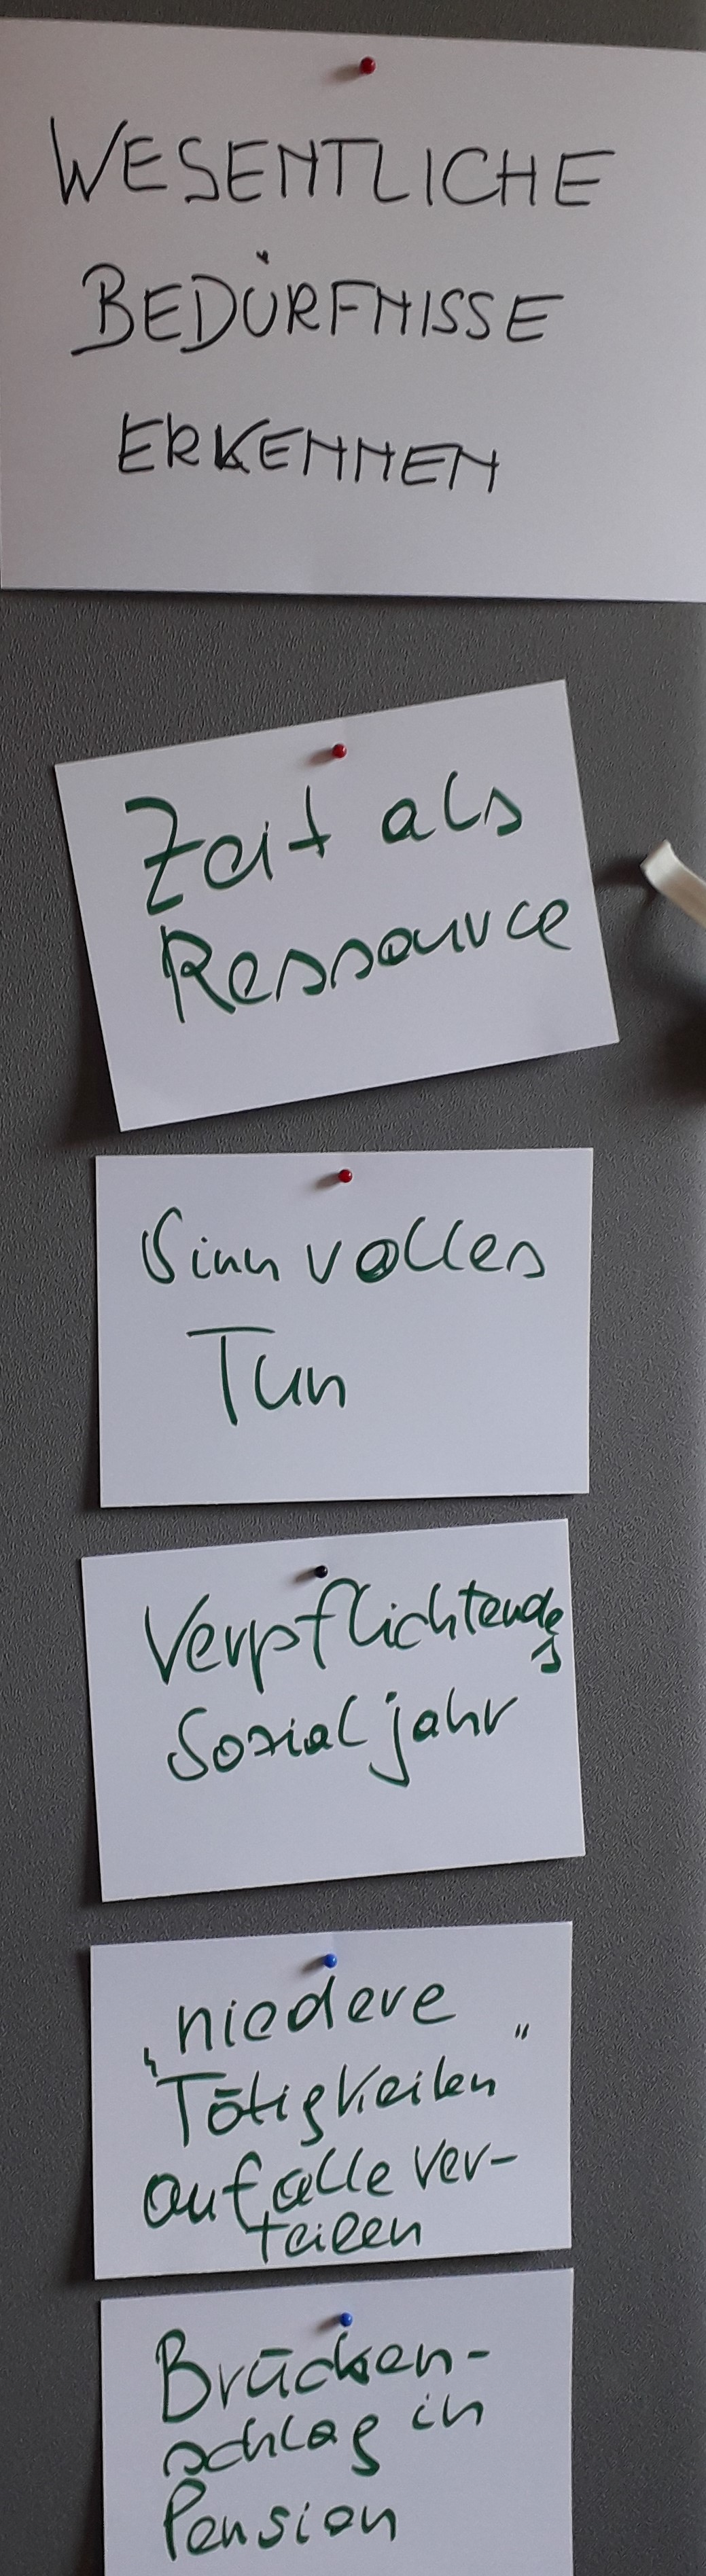 WESENTLICHE
BEDÜRFNISSE
ERKENNEN
Zeit als
Ressource
Sinnvolles
Tun
Verpflichtendes
Sozialjahr
„niedere
Tätigkeiten"
auf alle ver-
teilen
Brücken-
schlag in
Pension